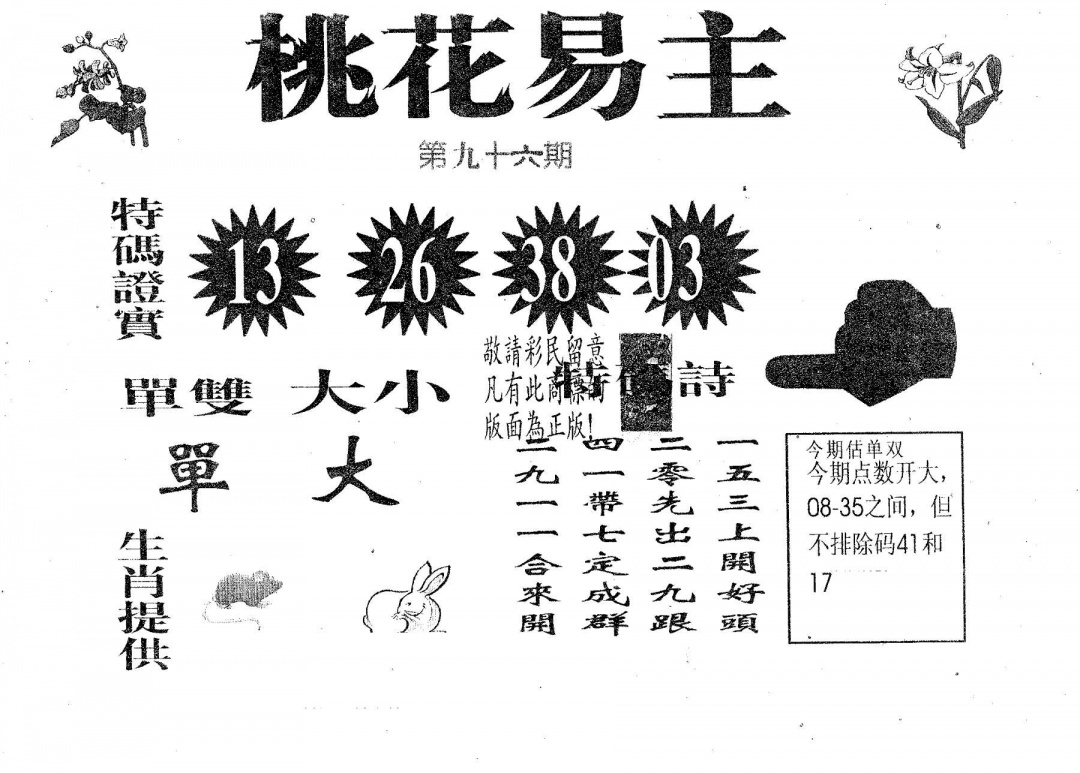 桃花易主
第九十六期
特碼證實
13 26 38 03
敬請彩民留意
凡有此商標的
版面為正版!
特碼詩
單雙 大小
單 大
一五三上開好頭
二零先出二九跟
四一帶七定成群
二九一一合來開
今期估单双
今期点数开大,
08-35之间，但
不排除码41和
17
生肖提供